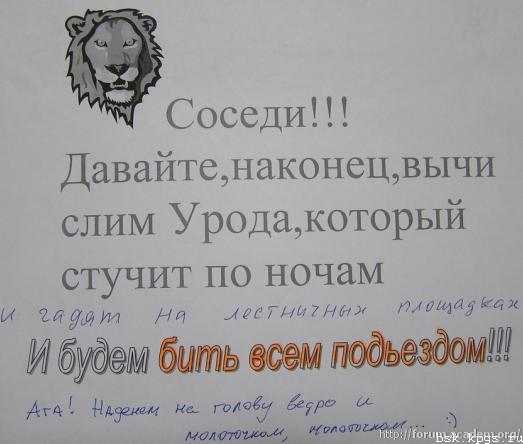 Соседи!!!
Давайте,наконец,вычи
слим Урода,который
стучит по ночам
и гадят на лестничных площадках
И будем бить всем подъездом!!!
Ага! Наденем на голову ведро и
молоточком, молоточком... :)
http://forum.academ.org/
bsk.kpgs.ru